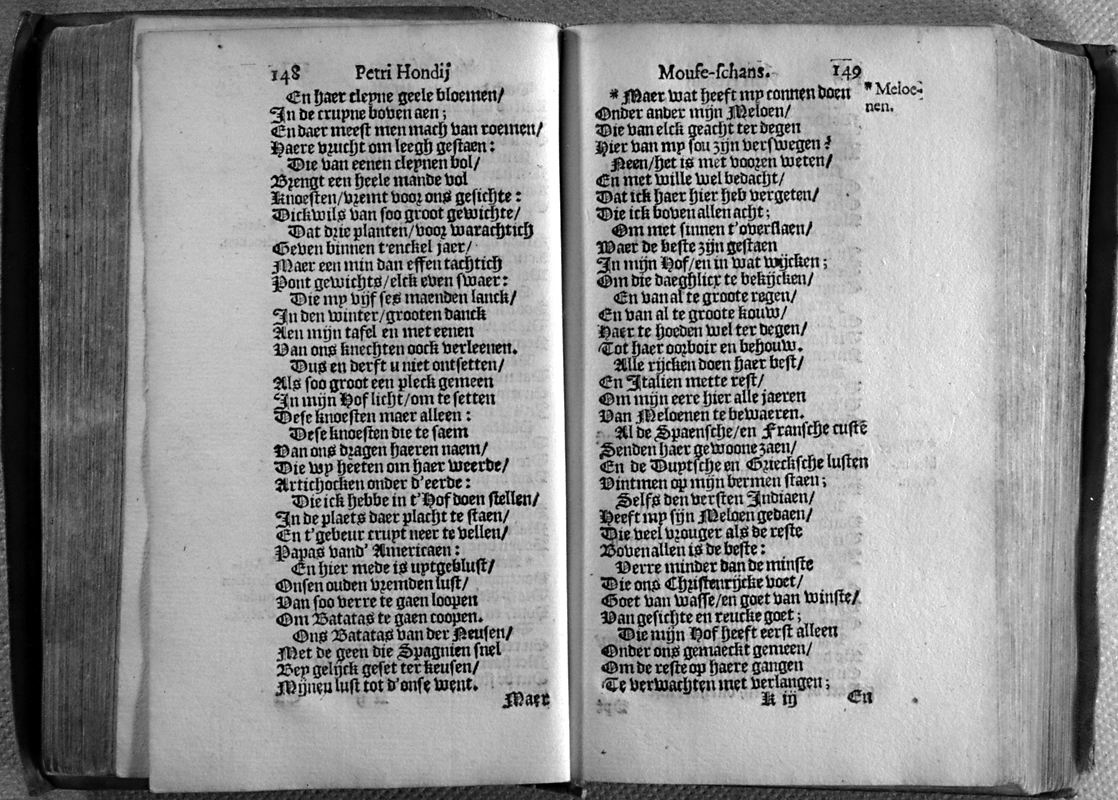 148 Petri Hondij
En haer cleyne geele bloemen/
In de cruyne boven aen;
En daer meest men mach van roemen/
Haere vrucht om leegh gestaen:
Die van eenen cleynen bol/
Brengt een heele mande vol
Knoesten/vremt voor ons gesichte:
Dickwils van soo groot gewichte/
Dat drie planten/voor warachtich
Geven binnen t'enckel jaer/
Maer een min dan effen tachtich
Pont gewichts/elck even swaer:
Die my vijf ses maenden lanck/
In den winter/grooten danck
Aen mijn tafel en met eenen
Van ons knechten oock verleenen.
Dus en derft u niet ontsetten/
Als soo groot een pleck gemeen
In mijn Hof licht/om te setten
Dese knoesten maer alleen:
Dese knoesten die te saem
Van ons dragen haeren naem/
Die wy heeten om haer weerde/
Artichocken onder d'eerde:
Die ick hebbe in t'Hof doen stellen/
In de plaets daer placht te staen/
En t'gebeur crupt neer te vellen/
Papas vand' Americaen:
En hier mede is uytgeblust/
Onsen ouden vremden lust/
Van soo verre te gaen loopen
Om Batatas te gaen coopen.
Ons Batatas van der Neusen/
Met de geen die Spagnien snel
Bey gelijck geset ter keusen/
Mijnen lust tot d'onse went.
Maer
Mouse-schans. 149
* Maer wat heeft my connen doen
Onder ander mijn Meloen/
Die van elck geacht ter degen
Hier van my sou zijn verswegen?
Neen/het is met vooren weten/
En met wille wel bedacht/
Dat ick haer hier heb vergeten/
Die ick boven allen acht;
Om met sinnen t'overslaen/
Waer de beste zijn gestaen
In mijn Hof/en in wat wijcken;
Om die daeghlicx te bekijcken/
En van al te groote regen/
En van al te groote kouw/
Haer te hoeden wel ter degen/
Tot haer oorboir en behouw.
Alle rijcken doen haer best/
En Italien mette rest/
Om mijn eere hier alle jaeren
Van Meloenen te bewaeren.
Al de Spaensche/en Fransche custe
Senden haer gewoone zaen/
En de Duytsche en Grieksche lusten
Vintmen op mijn bermen staen;
Selfs den versten Indiaen/
Heeft my sijn Meloen gedaen/
Die veel vrouger als de reste
Boven allen is de beste:
Verre minder dan de minste
Die ons Christenrijcke voet/
Goet van wasse/en goet van winste/
Van gesichte en reucke goet;
Die mijn Hof heeft eerst alleen
Onder ons gemaeckt gemeen/
Om de reste op haere gangen
Te verwachten met verlangen;
K ij En
* Meloe-
nen.